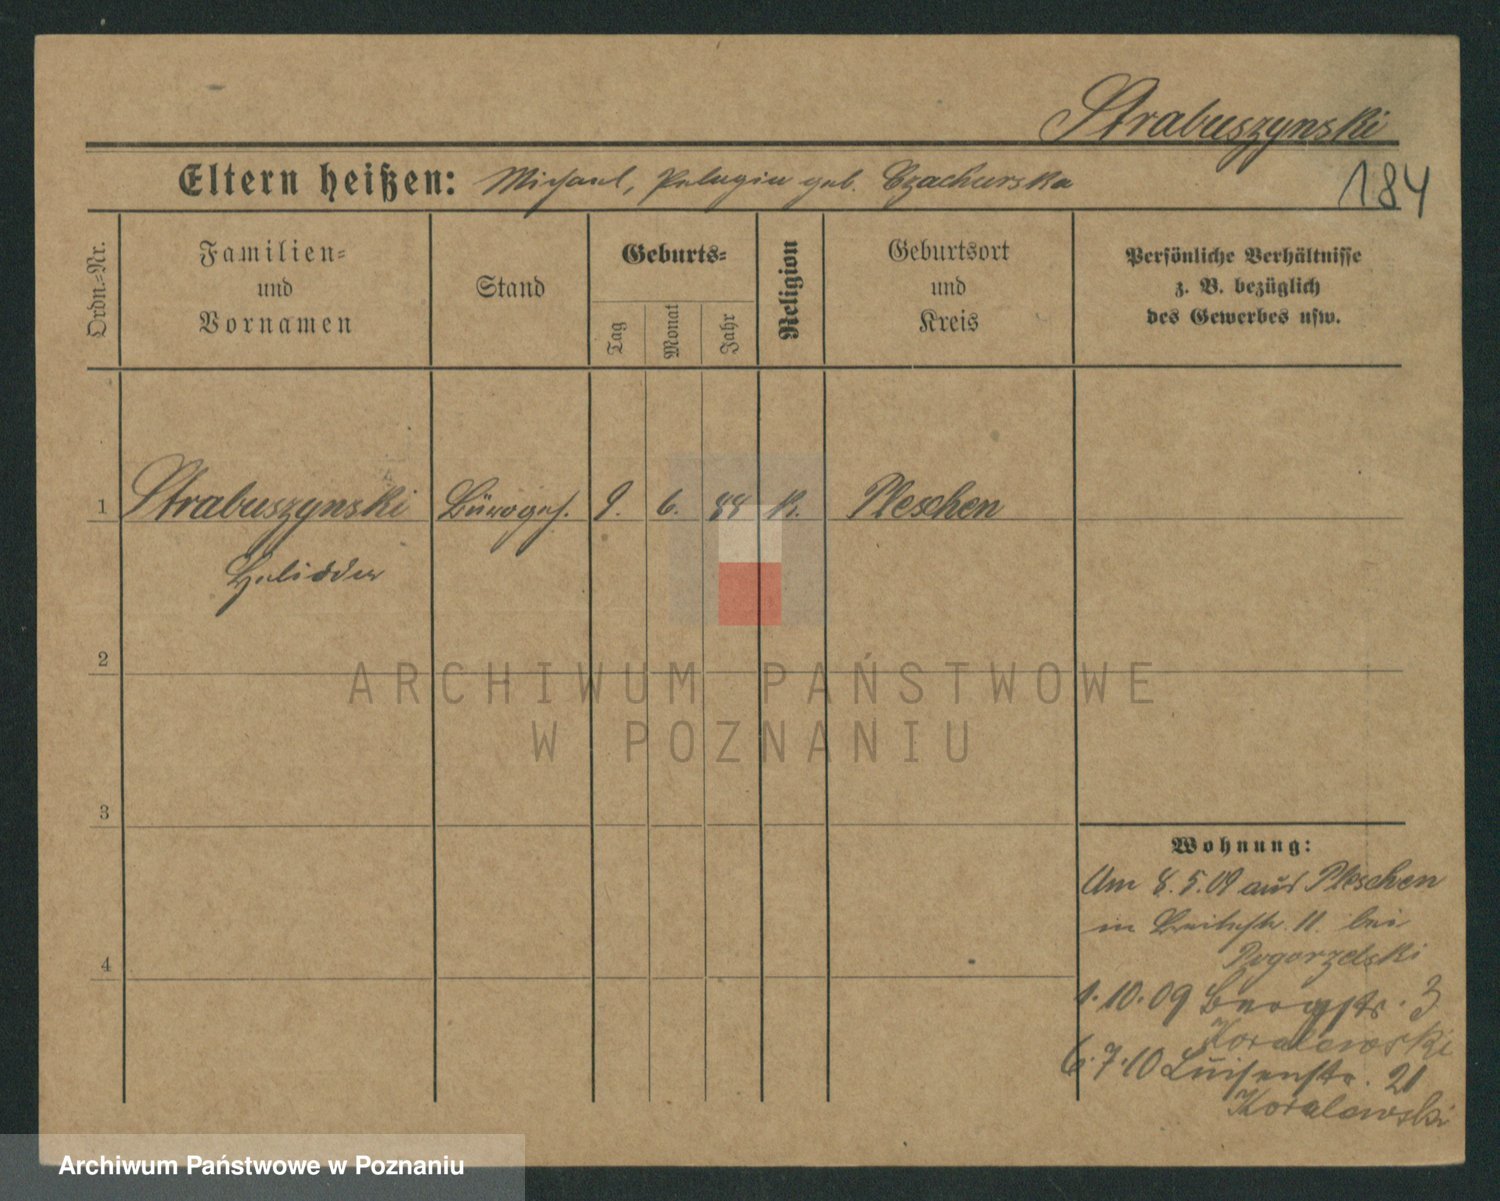 Strabuszynski
Eltern heißen: Michael, Pelagia geb. Czachurska
184
Ordn.-Nr.
Familien-
und
Vornamen
Stand
Geburts-
Tag
Monat
Jahr
Religion
Geburtsort
und
Kreis
Persönliche Verhältnisse
z. B. bezüglich
des Gewerbes usw.
1 Strabuszynski Bürogeh. 9. 6. 88 k. Pleschen
2
3
4
Wohnung:
Am 8.5.09 aus Pleschen
in 11. bei
Pogorzelski
1.10.09 Bergstr. 3
Koralewski
6.7.10 Luisenstr. 21
Koralewski
ARCHIWUM PAŃSTWOWE
W POZNANIU
Archiwum Państwowe w Poznaniu